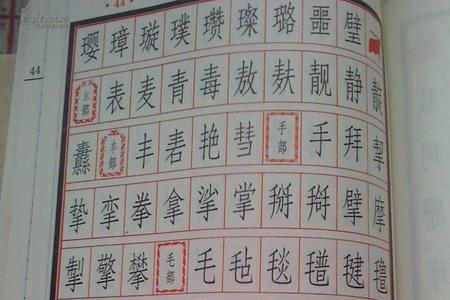 ·44·
44
璎璋璇璞瓒璨璐噩璧
龶部表麦青毒敖麸靓静靛
纛丰部丰砉艳彗手部手拜挈
挚挛拳拿挲掌掰搿擘摩
掣擎攀毛部毛毡毯氆毽氇